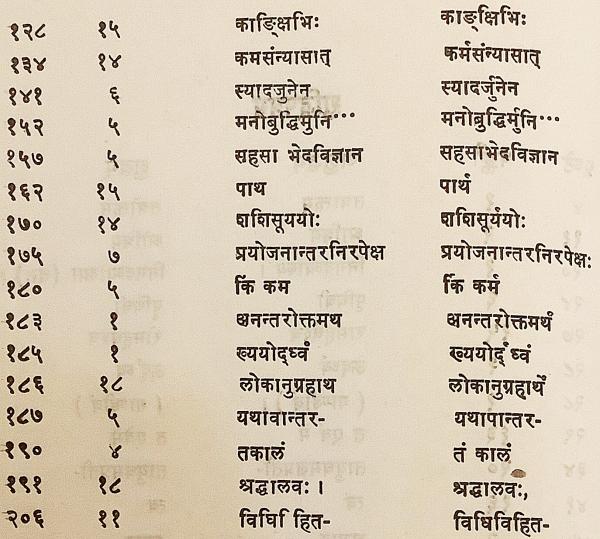 १२८ १५ काङ्क्षिभिः काङ्क्षिभिः
१३४ १४ कमसंन्यासात् कर्मसंन्यासात्
१४१ ६ स्यादजुनेन स्यादर्जुनेन
१५२ ५ मनोबुद्धिर्मुनि··· मनोबुद्धिर्मुनि···
१५७ ५ सहसा भेदविज्ञान सहसाभेदविज्ञान
१६२ १५ पाथ पार्थ
१७० १४ शशिसूययोः शशिसूर्ययोः
१७५ ७ प्रयोजनान्तरनिरपेक्ष प्रयोजनान्तरनिरपेक्षः
१८० ५ किं कम किं कर्म
१८३ १ अनन्तरोक्तमथ अनन्तरोक्तमर्थं
१८५ १ ख्ययोर्द्ध्वं ख्ययोर्द्ध्वं
१८६ १८ लोकानुग्रहाथ लोकानुग्रहार्थं
१८७ ५ यथावान्तर- यथापान्तर-
१९० ४ तकालं तं कालं
१९१ १८ श्रद्धालवः। श्रद्धालवः,
२०६ ११ विर्घि हित- विधिविहित-